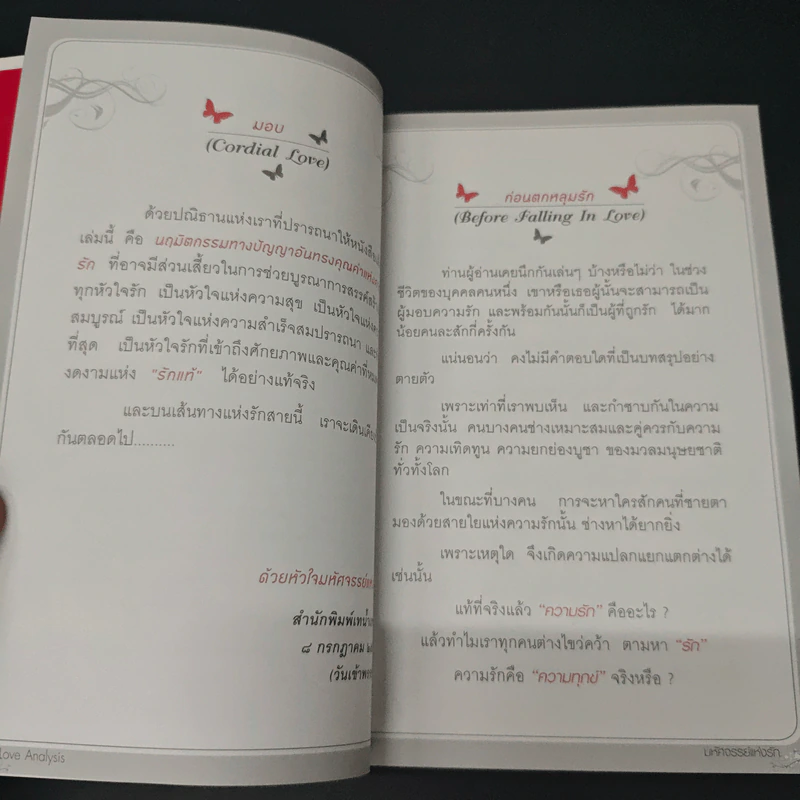 มอบ
(Cordial Love)
ด้วยปณิธานแห่งเราที่ปรารถนาให้หนังสือ
เล่มนี้ คือ นฤมิตกรรมทางปัญญาอันทรงคุณค่าแห่ง
รัก ที่อาจมีส่วนเสี้ยวในการช่วยบูรณาการสรรค์สร้าง
ทุกหัวใจรัก เป็นหัวใจแห่งความสุข เป็นหัวใจแห่ง
สมบูรณ์ เป็นหัวใจแห่งความสำเร็จสมปรารถนา และ
ที่สุด เป็นหัวใจรักที่เข้าถึงศักยภาพและคุณค่าที่
งดงามแห่ง “รักแท้” ได้อย่างแท้จริง
และบนเส้นทางแห่งรักสายนี้ เราจะเดินเคียง
กันตลอดไป..........
ด้วยหัวใจมหัศจรรย์
สำนักพิมพ์
๘ กรกฎาคม
(วันเข้า
Love Analysis
ก่อนตกหลุมรัก
(Before Falling In Love)
ท่านผู้อ่านเคยนึกกันเล่นๆ บ้างหรือไม่ว่า ในช่วง
ชีวิตของบุคคลคนหนึ่ง เขาหรือเธอผู้นั้นจะสามารถเป็น
ผู้มอบความรัก และพร้อมกันนั้นก็เป็นผู้ที่ถูกรัก ได้มาก
น้อยคนละสักกี่ครั้งกัน
แน่นอนว่า คงไม่มีคำตอบใดที่เป็นบทสรุปอย่าง
ตายตัว
เพราะเท่าที่เราพบเห็น และกำซาบกันในความ
เป็นจริงนั้น คนบางคนช่างเหมาะสมและคู่ควรกับความ
รัก ความเทิดทูน ความยกย่องบูชา ของมวลมนุษยชาติ
ทั่วทั้งโลก
ในขณะที่บางคน การจะหาใครสักคนที่ชายตา
มองด้วยสายใยแห่งความรักนั้น ช่างหาได้ยากยิ่ง
เพราะเหตุใด จึงเกิดความแปลกแยกแตกต่างได้
เช่นนั้น
แท้ที่จริงแล้ว “ความรัก” คืออะไร ?
แล้วทำไมเราทุกคนต่างไขว่คว้า ตามหา “รัก”
ความรักคือ “ความทุกข์” จริงหรือ ?
มหัศจรรย์แห่งรัก